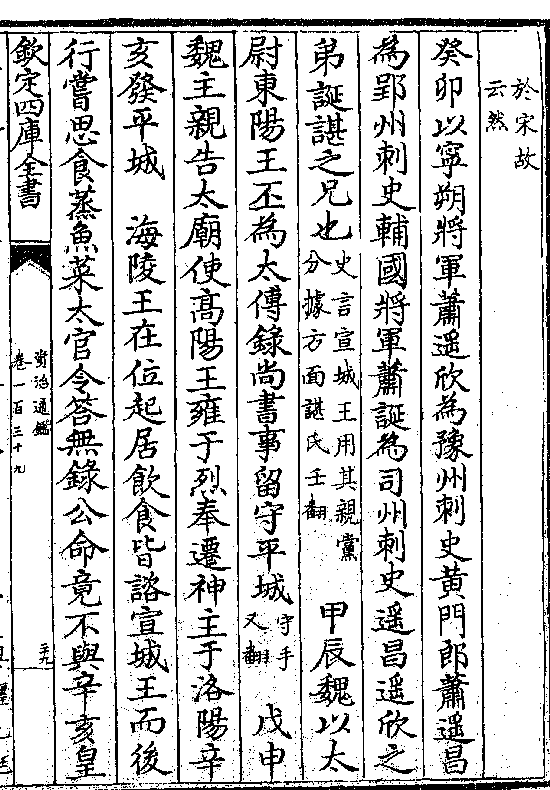 於宋故
云然
癸卯以寧朔將軍蕭遥欣為豫州刺史黄門郎蕭遥昌
為郢州刺史輔國將軍蕭誕為司州刺史遥昌遥欣之
弟誕諶之兄也
史言宣城王用其親黨
分據方面諶氏壬翻
甲辰魏以太
尉東陽王丕為太傅錄尚書事留守平城
守手
又翻
戊申
魏主親告太廟使髙陽王雍于烈奉遷神主于洛陽辛
亥發平城　海陵王在位起居飲食皆諮宣城王而後
行嘗思食蒸魚菜太官令答無錄公命竟不與辛亥皇
欽定四庫全書
資治通鑑
卷一百三十九